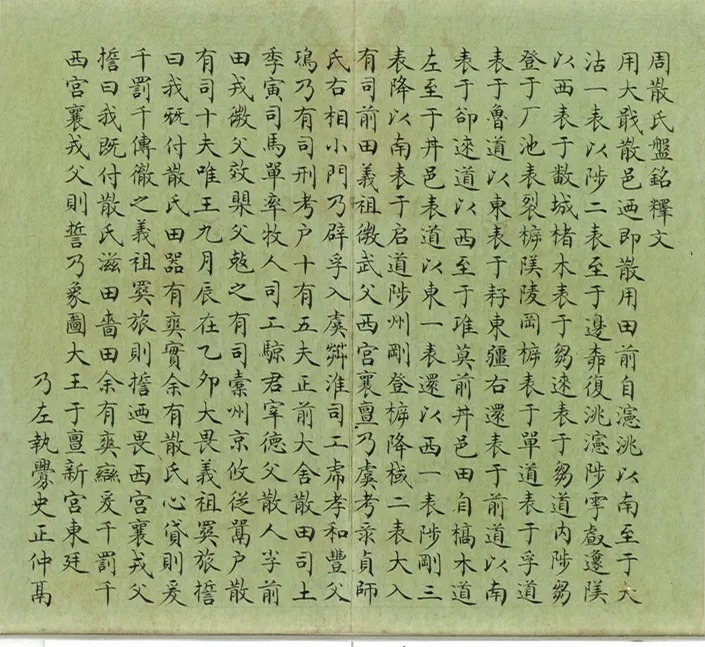 周散氏盤銘釋文
用大戡散邑迺即散用田前自瀗洮以南至于大
沽一表以陟二表至于邊桒復洮瀗陟雩𢾭邍䧅
以西表于敽城楮木表于芻逨表于芻道内陟芻
登于厂池表裂㯱䧅陵岡㯱表于單道表于孚道
表于魯道以東表于䎦東疆右還表于前道以南
表于郤逨道以西至于琟莫前丼邑田自槁木道
左至于丼邑表道以東一表還以西一表陟剛三
表降以南表于启道陟州剛登㯱降棫二表大入
有司前田義祖微武父西宫襄亶乃虞考录貞師
氏右相小門乃辟孚入虞茻淮司工虎孝和豐父
鳿乃有司刑考户十有五夫正前大舍散田司土
季寅司馬單率牧人司工騬君宰德父散人芈前
田戎微父效㮚父𠡠之有司橐州京攸從䚄户散
有司十夫唯王九月辰在乙夘大畏義祖䍺旅㨪
曰我旣付散氏田器有爽實余有散氏心貸則爰
千罰千傳徹之義祖䍺旅則㨪迺畏西宫襄戎父
㨪曰我既付散氏滋田嗇田余有爽䜌爰千罰千
西宫襄戎父則誓乃象圖大王于亶新宫東廷
乃左執㸑史正仲䚄